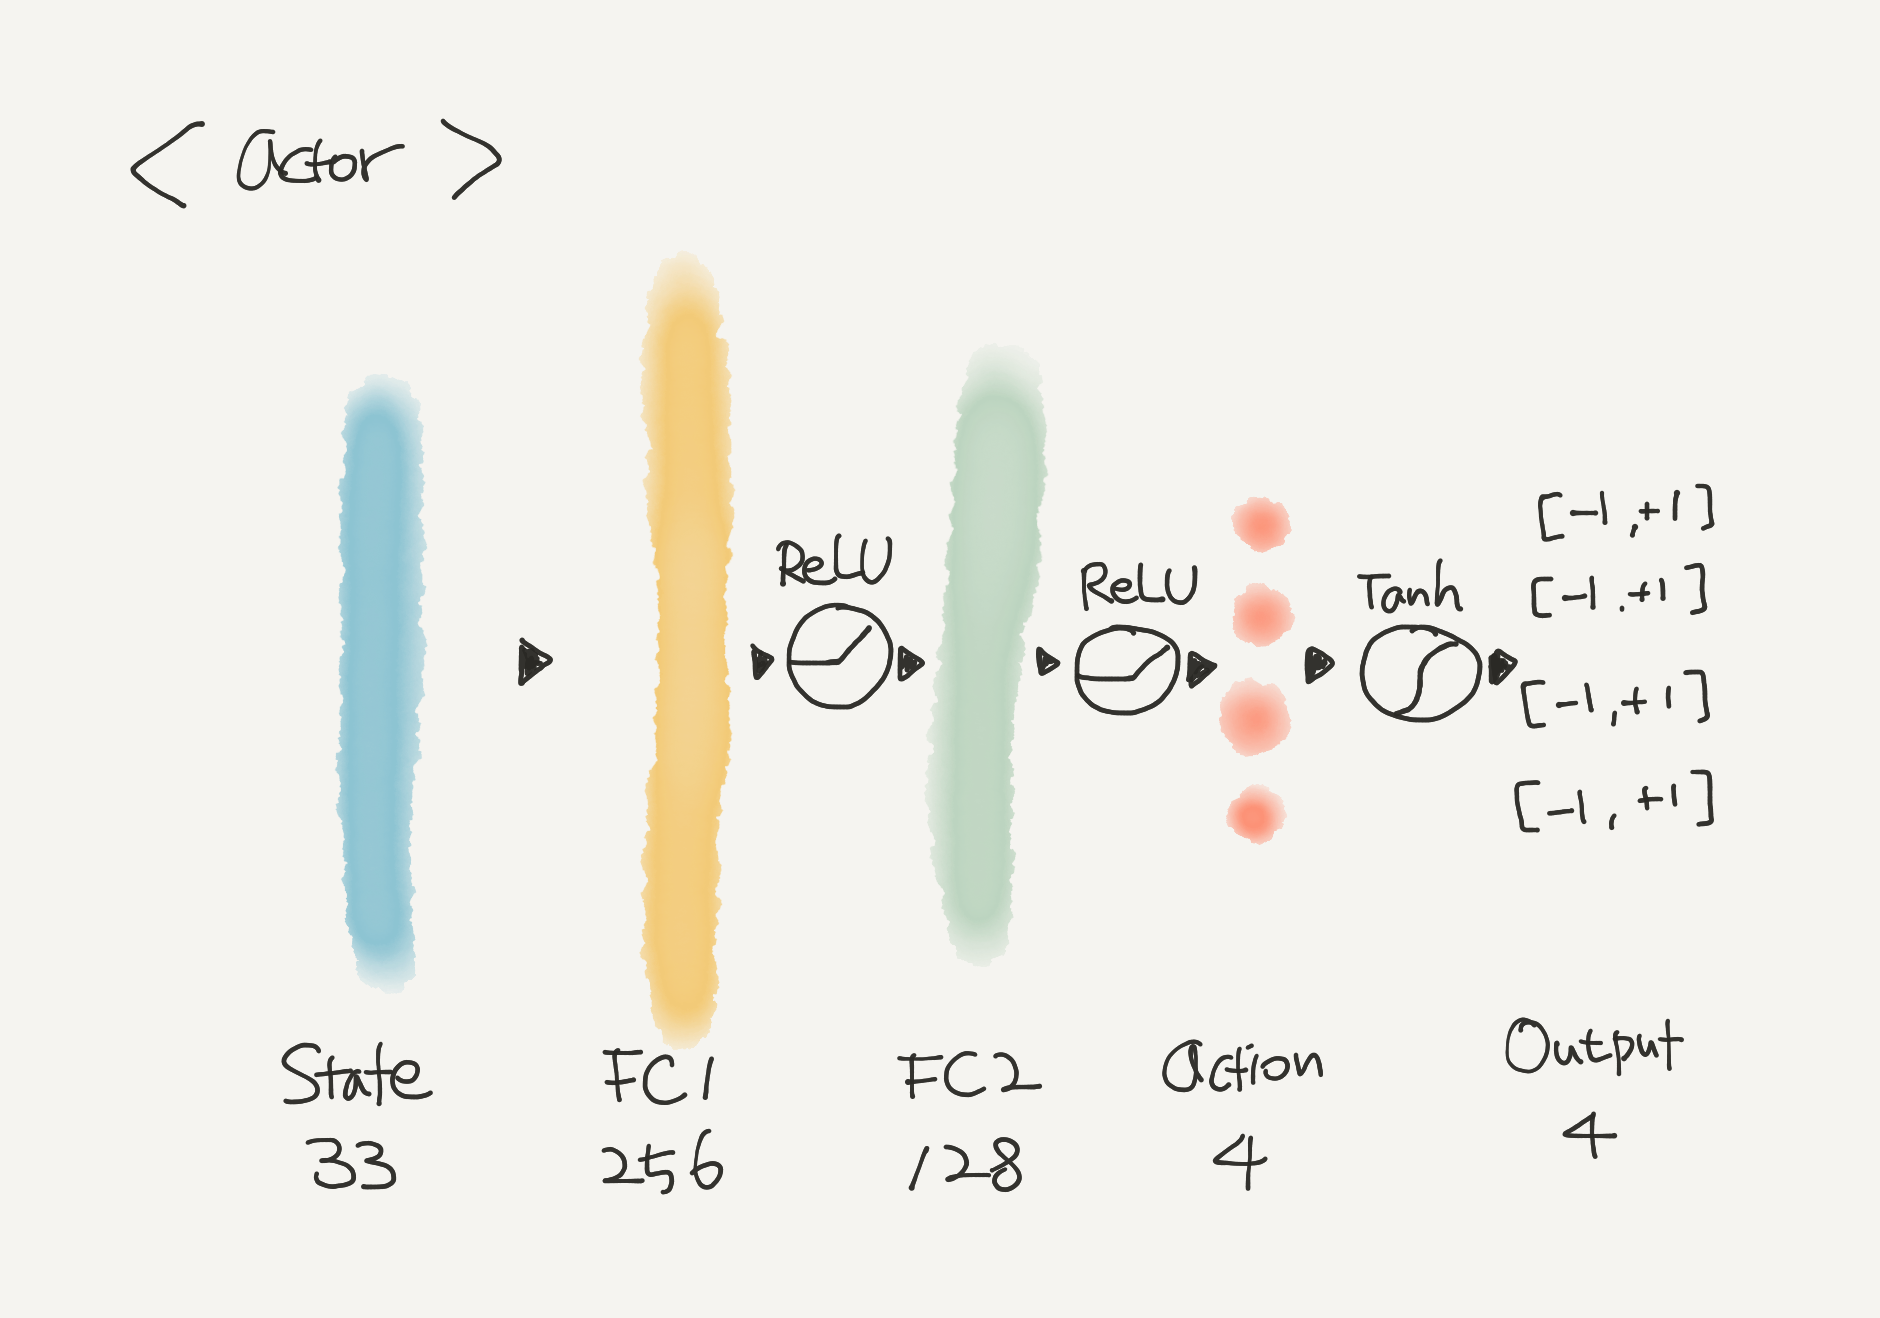 < actor >
ReLU
ReLU
Tanh
[-1,+1]
[-1.+1]
[-1,+1]
[-1,+1]
State
33
FC1
256
FC2
128
action
4
Output
4